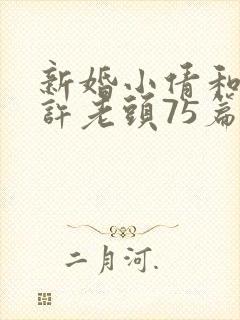 新婚小倩和
許老頭75篇
二月河.